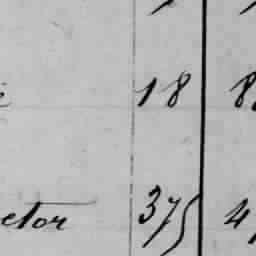 18 8
ctor 375 4